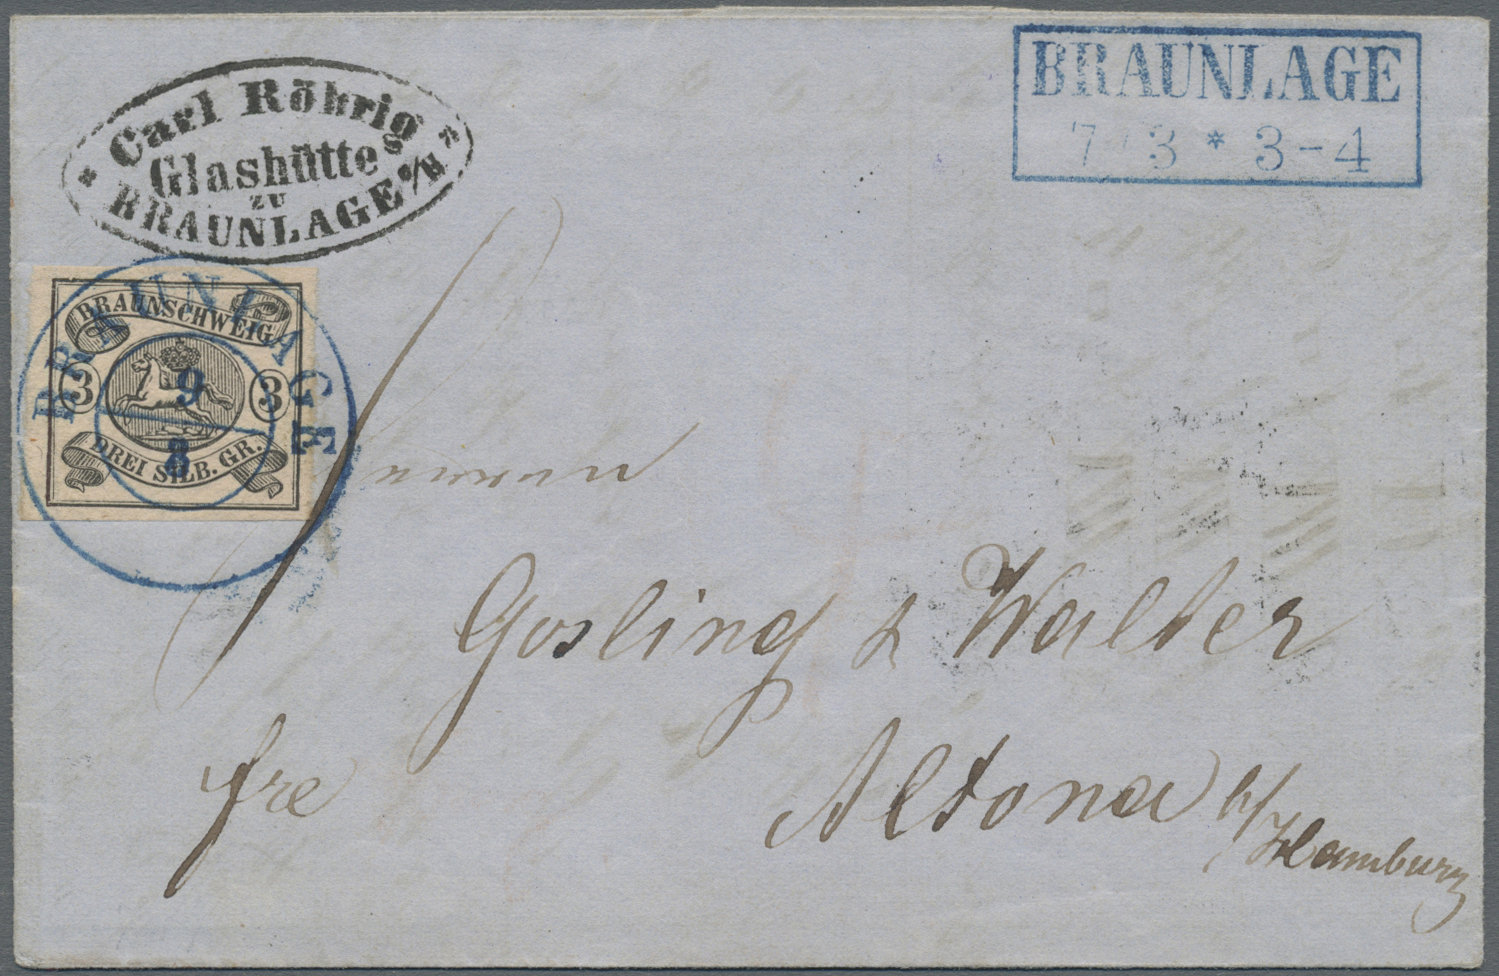 Carl Röhrig
Glashütte
ZU
BRAUNLAGE a/H
BRAUNLAGE
7 3 * 3-4
BRAUNLAGE
9
8
BRAUNSCHWEIG
3 3
DREI SILB. GR.
Gosling & Walter
fre
Altona b/
Hamburg